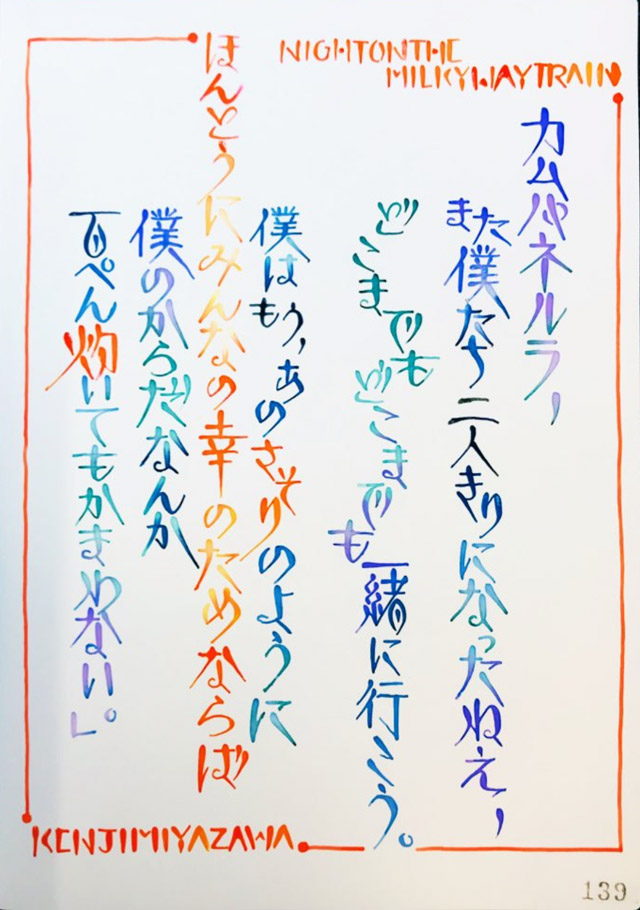 NIGHTONTHE
MILKYWAYTRAIN
カムパネルラ、
また僕たち二人きりになったねえ、
どこまでもどこまでも一緒に行こう。
僕はもう、あのさそりのように
ほんとうにみんなの幸のためならば
僕のからだなんか
百ぺん灼いてもかまわない」。
KENJIMIYAZAWA
139